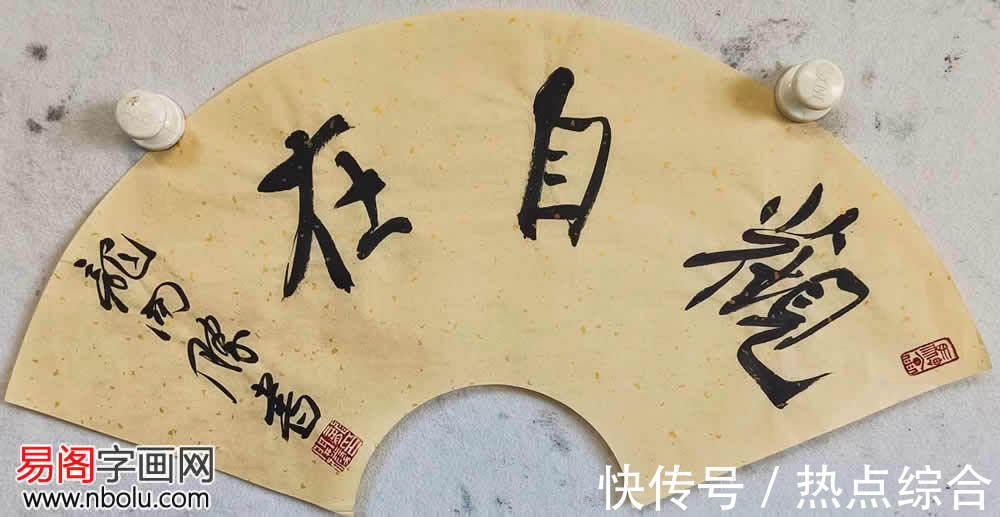 觀自在
龍開勝書
易阁字画网
www.nbolu.com
快传号 / 热点综合